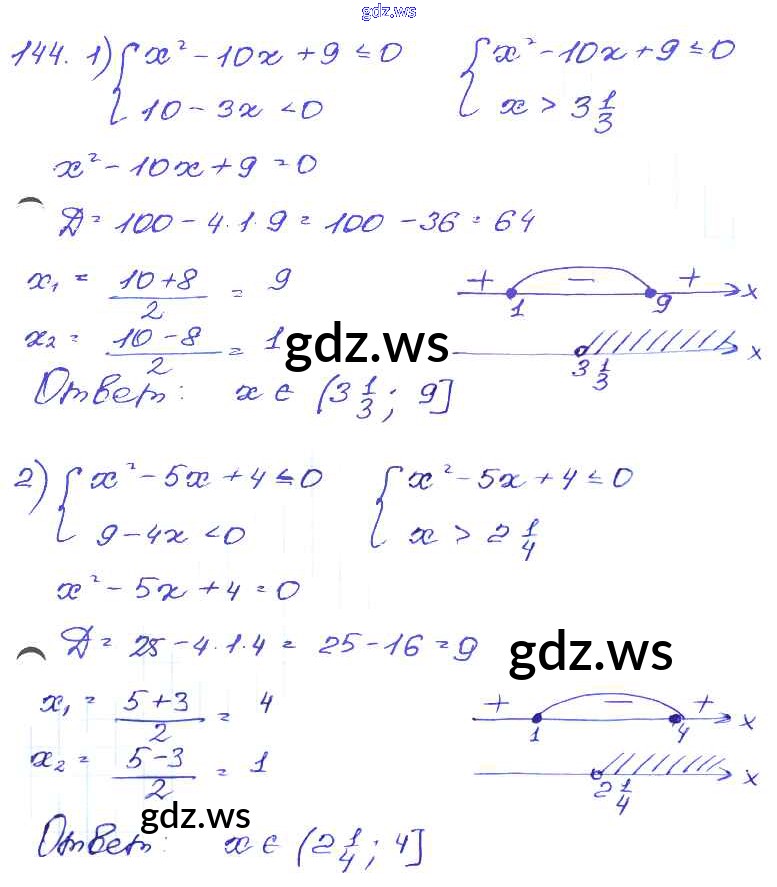 gdz.ws
144. 1) { x² - 10x + 9 ≤ 0 { x² - 10x + 9 ≤ 0
10 - 3x < 0 x > 3 1/3
x² - 10x + 9 = 0
Д = 100 - 4·1·9 = 100 - 36 = 64
x₁ = (10 + 8)/2 = 9
+ − +
1 9 x
x₂ = (10 - 8)/2 = 1
gdz.ws
3 1/3 x
Ответ: x ∈ (3 1/3; 9]
2) { x² - 5x + 4 ≤ 0 { x² - 5x + 4 ≤ 0
9 - 4x < 0 x > 2 1/4
x² - 5x + 4 = 0
Д = 25 - 4·1·4 = 25 - 16 = 9
gdz.ws
x₁ = (5 + 3)/2 = 4
+ − +
1 4 x
x₂ = (5 - 3)/2 = 1
2 1/4 x
gdz.ws
Ответ: x ∈ (2 1/4; 4]